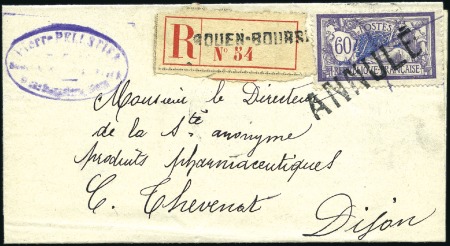 Pierre PELLETIER
R ROUEN-BOURSE
N° 54
POSTES
60
FRANÇAISE
ANNULÉ
Monsieur le Directeur
de la Sté anonyme
produits pharmaceutiques
C. Thevenot
Dijon